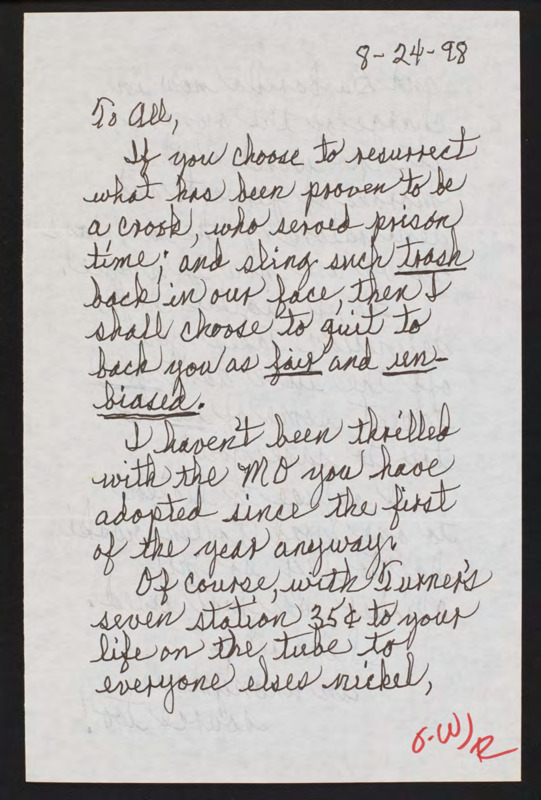 8-24-98
To All,
If you choose to resurrect
what has been proven to be
a crook, who served prison
time; and sling such trash
back in our face, then I
shall choose to quit to
back you as fair and un-
biased.
I haven't been thrilled
with the MO you have
adopted since the first
of the year anyway.
Of course, with Turner's
seven station 35¢ to your
life on the tube to
everyone elses nickel,